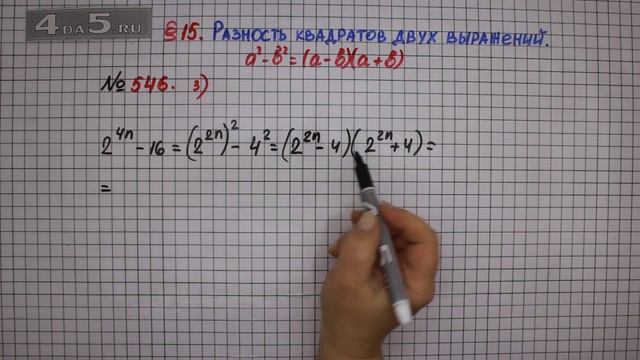 4DA5.RU
§ 15. Разность квадратов двух выражений.
a² - b² = (a - b)(a + b)
№ 546. з)
2⁴ⁿ - 16 = (2²ⁿ)² - 4² = (2²ⁿ - 4)(2²ⁿ + 4) =
=